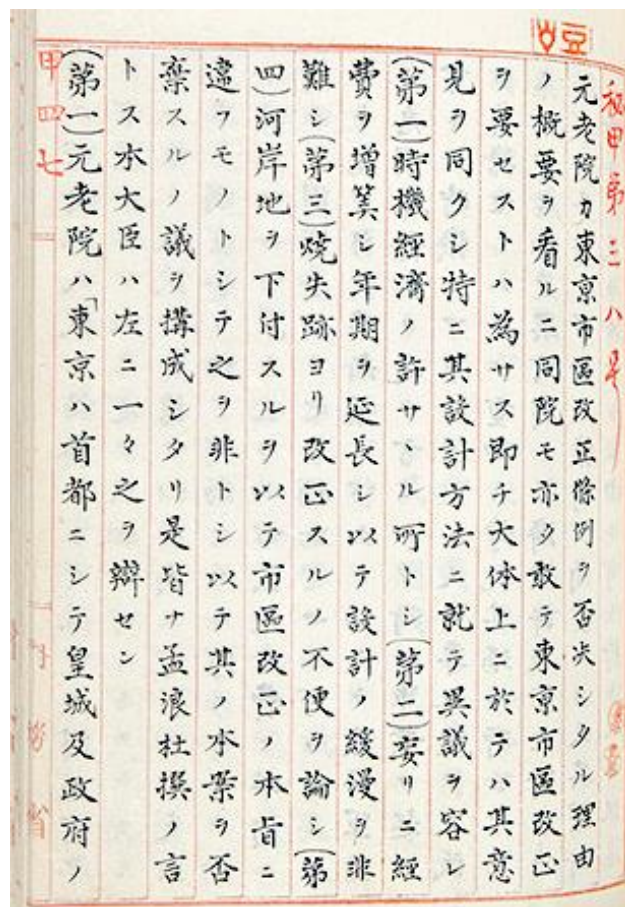 秘甲第三八号
元老院カ東京市區改正條例ヲ否決シタル理由
ノ概要ヲ看ルニ同院モ亦タ敢テ東京市區改正
ヲ要セストハ為サス即チ大体上ニ於テハ其意
見ヲ同クシ特ニ其設計方法ニ就テ異議ヲ容レ
(第一)時機經濟ノ許サヽル所トシ(第二)妄リニ經
費ヲ増筭シ年期ヲ延長シ以テ設計ノ緩漫ヲ非
難シ(第三)焼失跡ヨリ改正スルノ不便ヲ論シ(第
四)河岸地ヲ下付スルヲ以テ市區改正ノ本旨ニ
違フモノトシテ之ヲ非トシ以テ其ノ本案ヲ否
棄スルノ議ヲ搆成シタリ是皆ナ孟浪杜撰ノ言
トス本大臣ハ左ニ一々之ヲ辯セン
(第一)元老院ハ「東京ハ首都ニシテ皇城及政府ノ
甲四七
省